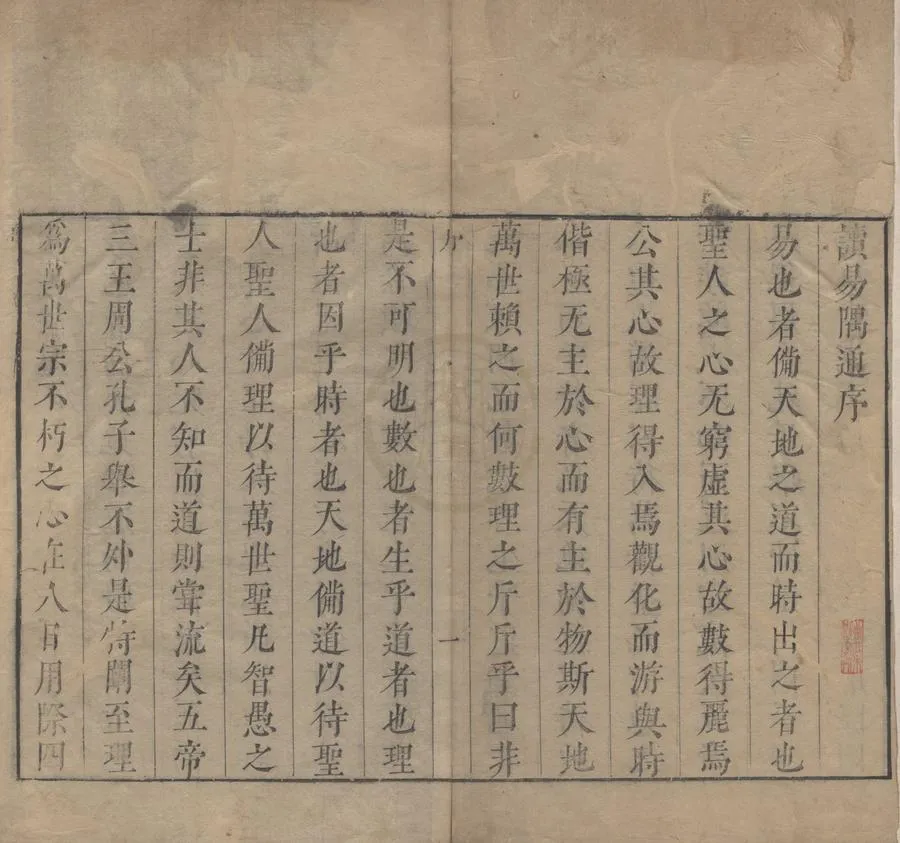 讀易隅通序
易也者備天地之道而時出之者也
聖人之心无窮虛其心故數得麗焉
公其心故理得入焉觀化而游與時
偕極无主於心而有主於物斯天地
萬世賴之而何數理之斤斤乎曰非
序 一
是不可明也數也者生乎道者也理
也者因乎時者也天地備道以待聖
人聖人備理以待萬世聖凡智愚之
士非其人不知而道則常流矣五帝
三王周公孔子舉不外是特闡至理
為萬世宗不朽之心在人日用除四